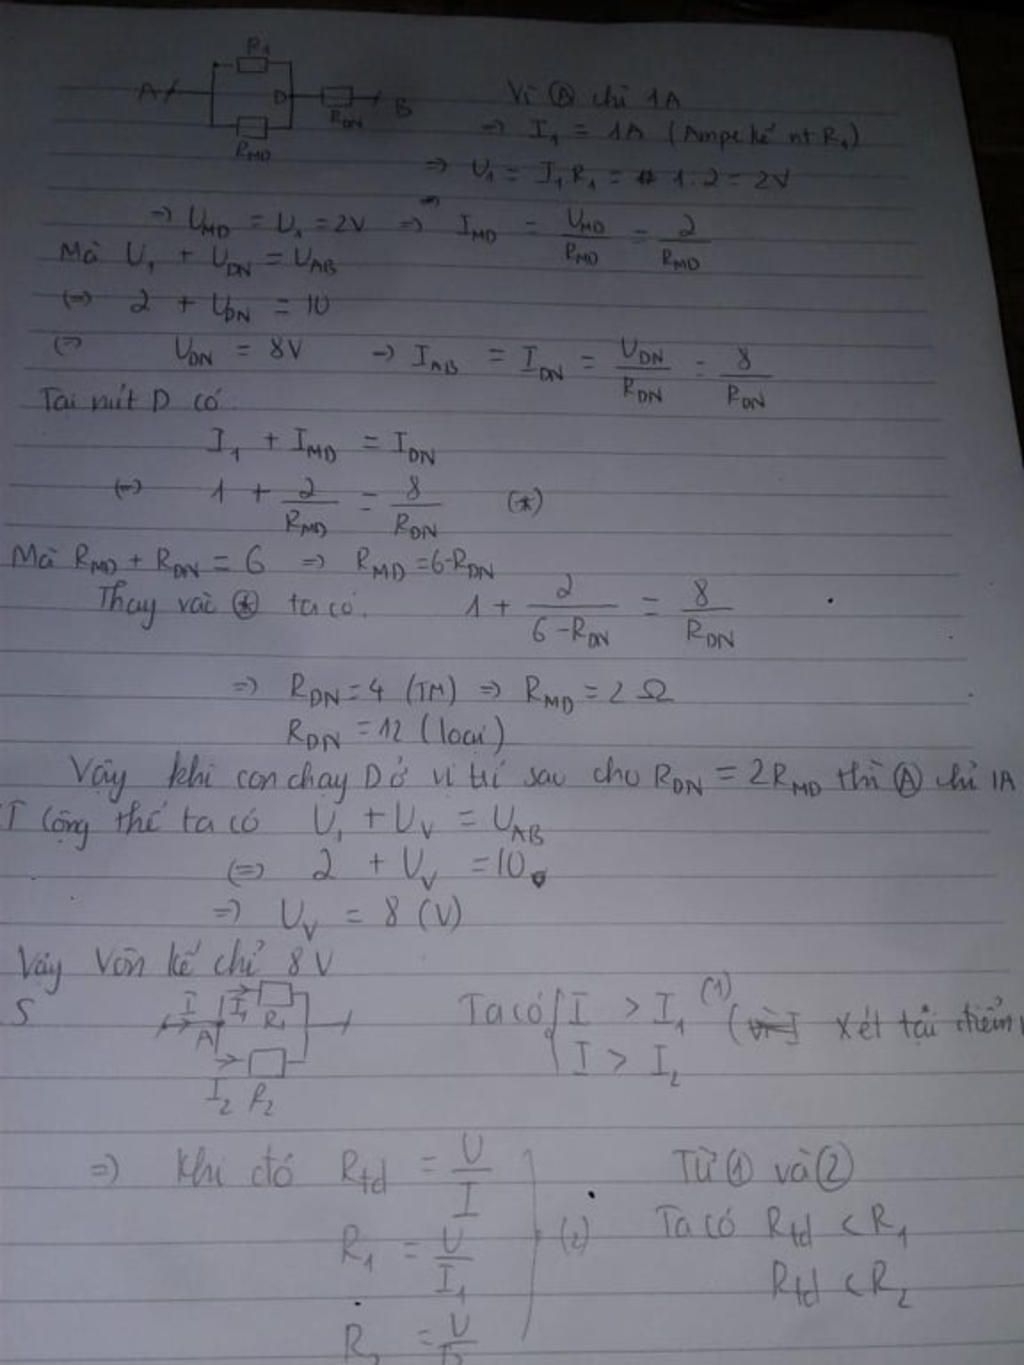 R₁
A D R_DN B Vì Ⓐ chỉ 1A
R_MD
=> I₁ = 1A (Ampe kế nt R₁)
=> U₁ = I₁R₁ = 1.2 = 2V
=> U_MD = U₁ = 2V => I_MD = U_MD/R_MD = 2/R_MD
Mà U₁ + U_DN = U_AB
(=) 2 + U_DN = 10
(=) U_DN = 8V -> I_AB = I_DN = U_DN/R_DN = 8/R_DN
Tại nút D có
I₁ + I_MD = I_DN
(=) 1 + 2/R_MD = 8/R_DN (*)
Mà R_MD + R_DN = 6 => R_MD = 6-R_DN
Thay vài (*) ta có. 1 + 2/(6-R_DN) = 8/R_DN
=> R_DN = 4 (TM) => R_MD = 2 Ω
R_DN = 12 (loại)
Vậy khi con chạy D ở vị trí sao cho R_DN = 2R_MD thì Ⓐ chỉ 1A
T Cộng thế ta có U₁ + U_V = U_AB
(=) 2 + U_V = 10
=> U_V = 8 (V)
Vậy Vôn kế chỉ 8V
S I I₁ R₁ A I₂ R₂
Ta có { I > I₁ (1) (Xét tại điểm
I > I₂
=> Khi đó R_tđ = U/I Từ ① và ②
R₁ = U/I₁ (2) Ta có R_tđ < R₁
R_tđ < R₂
R₂ = U